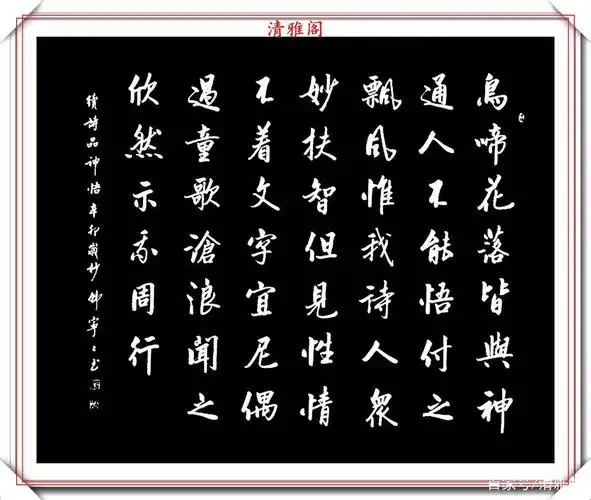 清雅阁
鳥啼花落皆與神
通人不能悟付之
飄風惟我詩人衆
妙扶智但見性情
不着文字宣尼偶
過童歌滄浪聞之
欣然示我周行
續詩品神悟辛卯歲杪 寧〻书
百家号/清雅